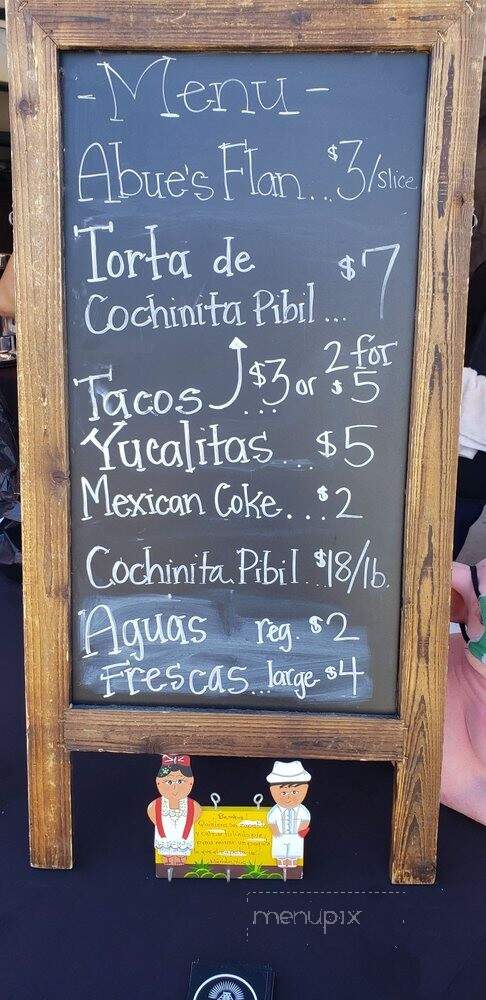 - Menu -
Abue's Flan... $3/slice
Torta de
Cochinita Pibil... $7
Tacos $3 or 2 for $5
...
Yucalitas... $5
Mexican Coke... $2
Cochinita Pibil.. $18/lb.
Aguas reg. $2
Frescas... large $4
menupix